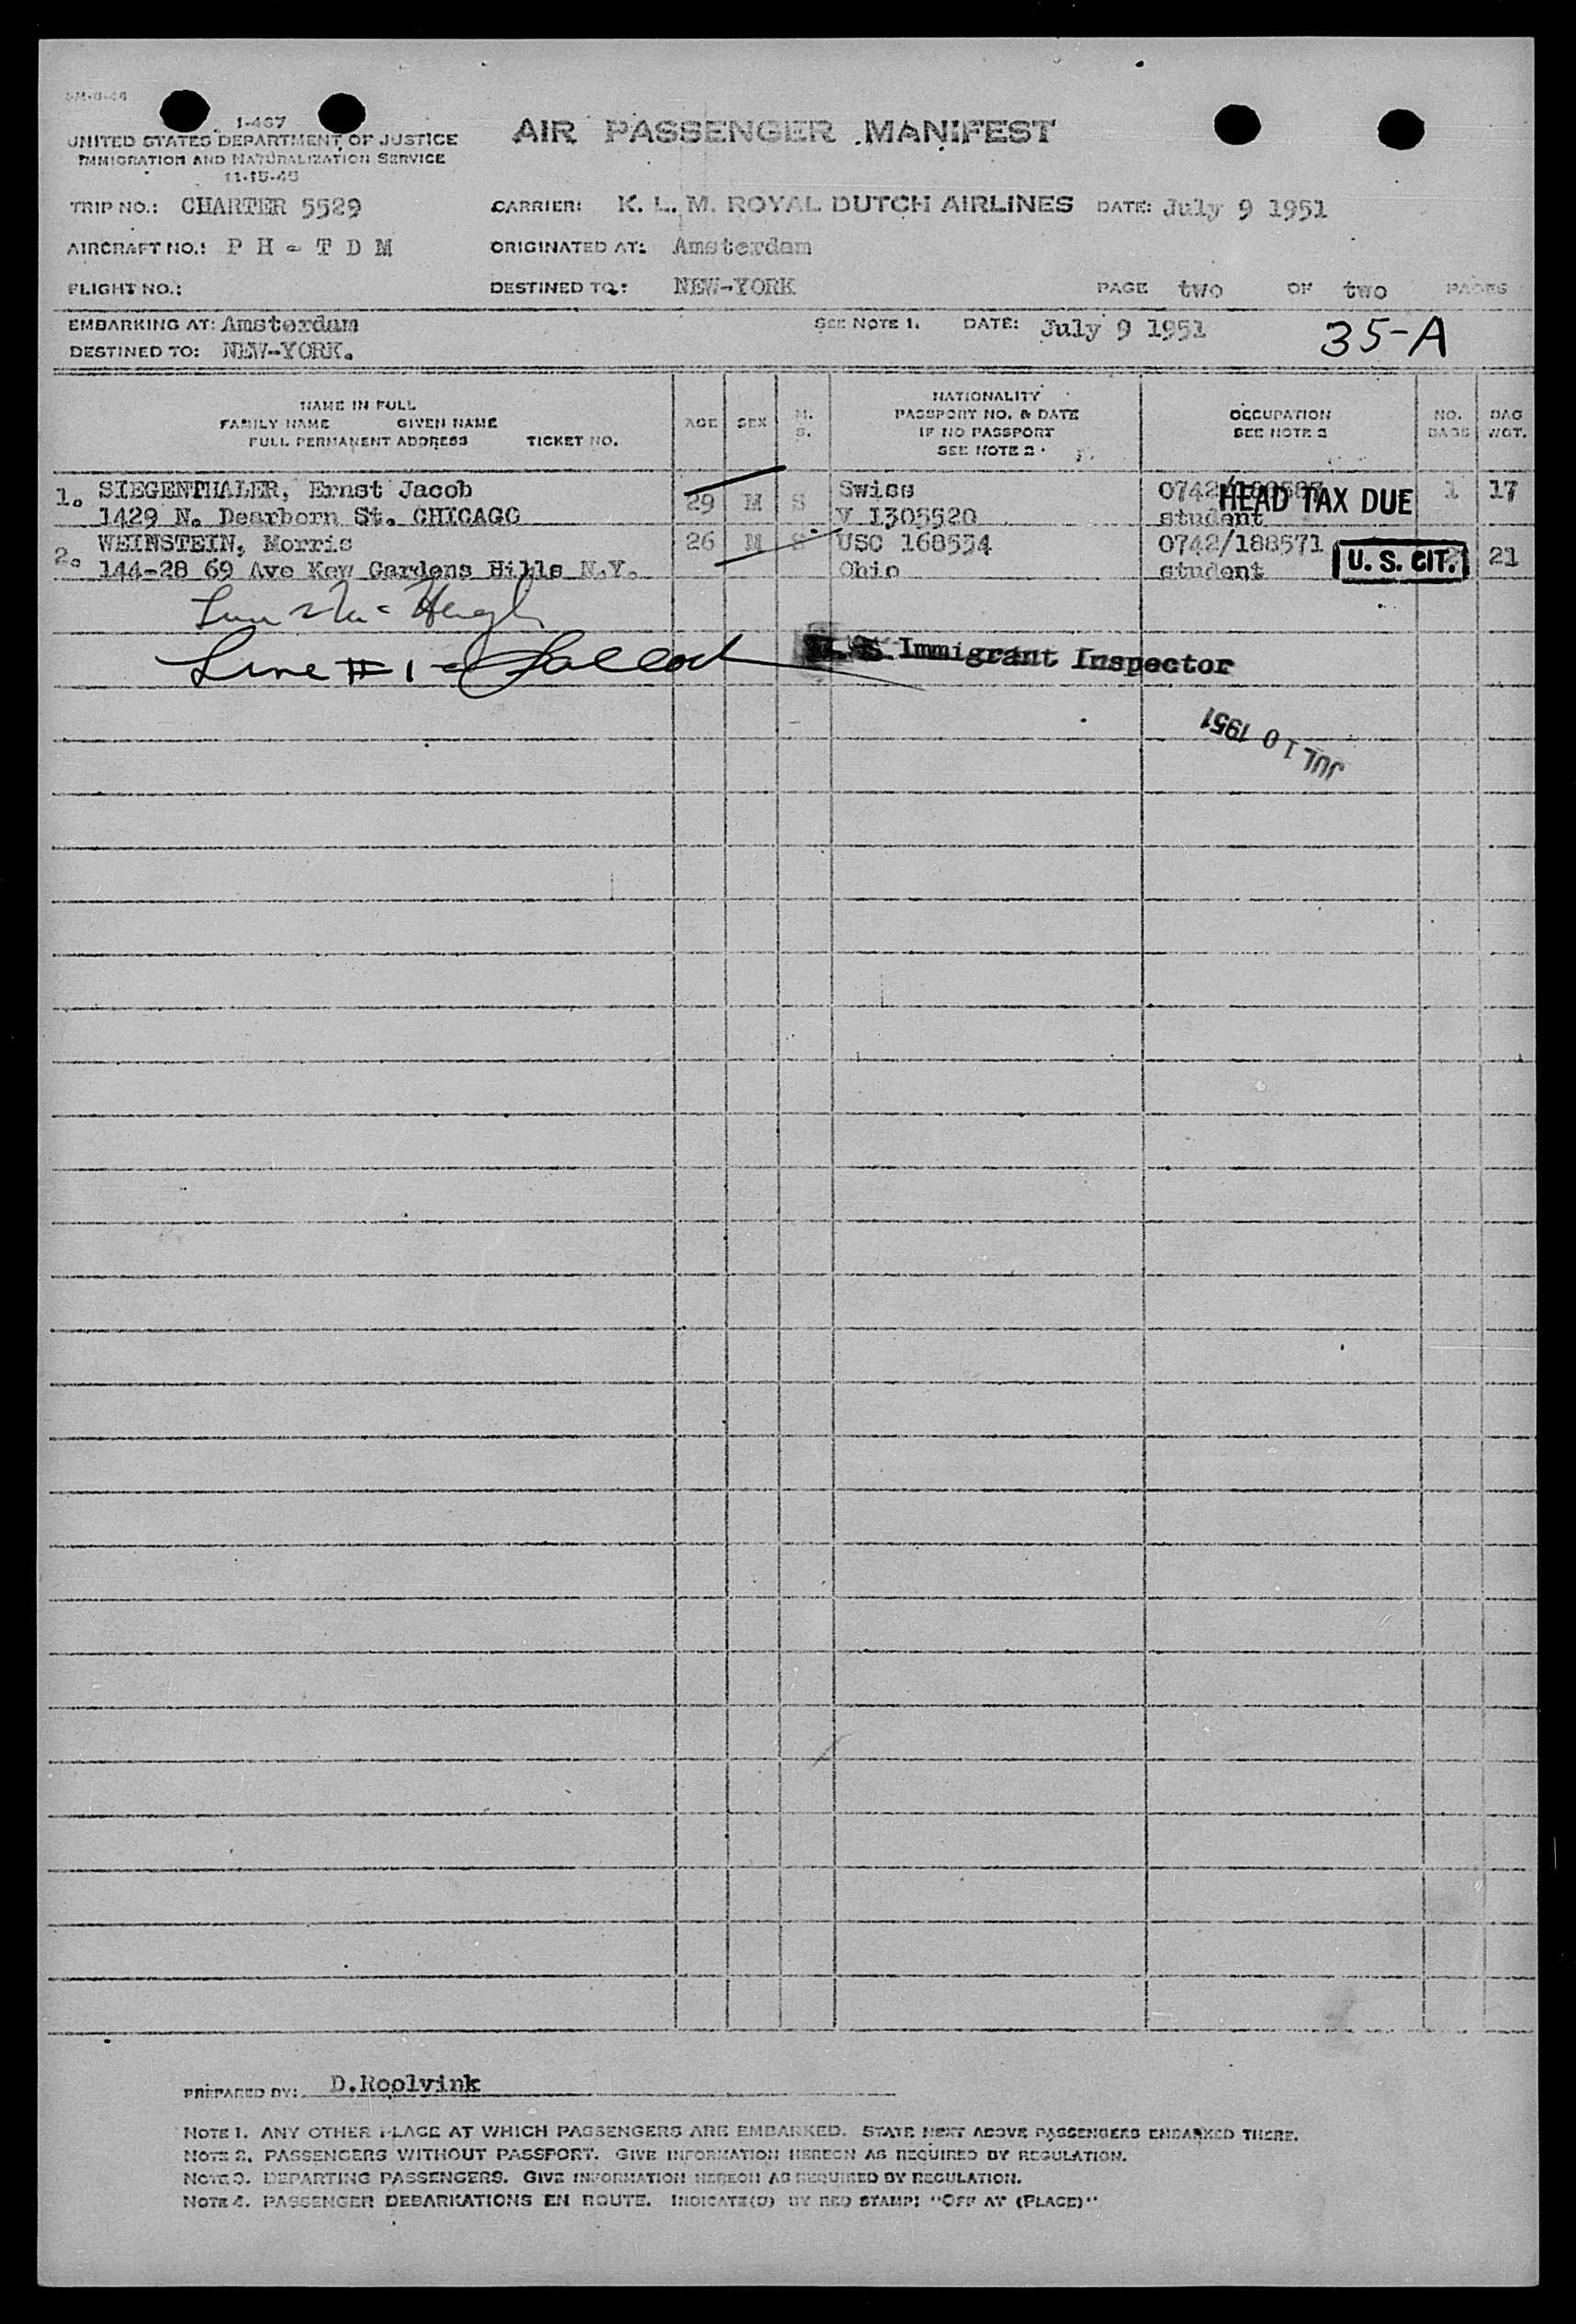 I-467
UNITED STATES DEPARTMENT OF JUSTICE
IMMIGRATION AND NATURALIZATION SERVICE
11-15-45
AIR PASSENGER MANIFEST
TRIP NO.: CHARTER 5529 CARRIER: K. L. M. ROYAL DUTCH AIRLINES DATE: July 9 1951
AIRCRAFT NO.: P H - T D M ORIGINATED AT: Amsterdam
FLIGHT NO.: DESTINED TO: NEW-YORK PAGE two OF two PAGES
EMBARKING AT: Amsterdam SEE NOTE 1. DATE: July 9 1951 35-A
DESTINED TO: NEW-YORK.
NAME IN FULL
FAMILY NAME GIVEN NAME
FULL PERMANENT ADDRESS TICKET NO.
AGE SEX M. S.
NATIONALITY
PASSPORT NO. & DATE
IF NO PASSPORT
SEE NOTE 2
OCCUPATION
SEE NOTE 3
NO. BAGS
BAG WGT.
1. SIEGENTHALER, Ernst Jacob 29 M S Swiss 0742/ HEAD TAX DUE 1 17
1429 N. Dearborn St. CHICAGO V 1305520 student
2. WEINSTEIN, Morris 26 M S USC 168554 0742/188571
144-28 69 Ave Kew Gardens Hills N.Y. Ohio student U. S. CIT. 21
Line #1 -
U. S. Immigrant Inspector
JUL 10 1951
PREPARED BY: D.Roolvink
NOTE 1. ANY OTHER PLACE AT WHICH PASSENGERS ARE EMBARKED. STATE NEXT ABOVE PASSENGERS EMBARKED THERE.
NOTE 2. PASSENGERS WITHOUT PASSPORT. GIVE INFORMATION HEREON AS REQUIRED BY REGULATION.
NOTE 3. DEPARTING PASSENGERS. GIVE INFORMATION HEREON AS REQUIRED BY REGULATION.
NOTE 4. PASSENGER DEBARKATIONS EN ROUTE. INDICATE(D) BY RED STAMP: "OFF AT (PLACE)"